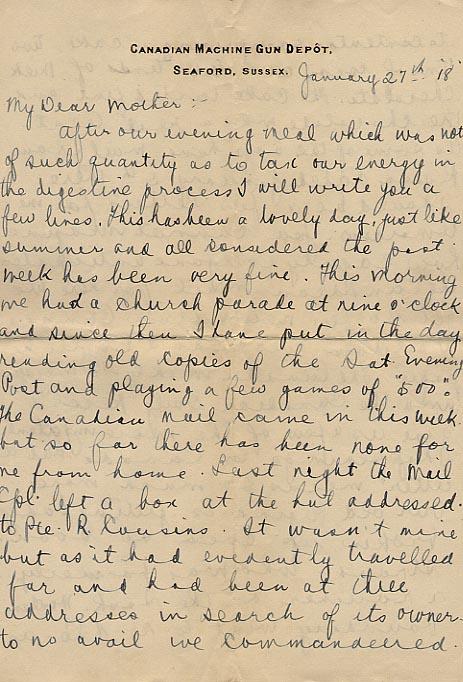 CANADIAN MACHINE GUN DEPÔT,
SEAFORD, SUSSEX.
January 27th 18
My Dear Mother :-
After our evening meal which was not
of such quantity as to tax our energy in
the digestive process I will write you a
few lines. This has been a lovely day, just like
summer and all considered the past
week has been very fine. This morning
we had a church parade at nine o'clock
and since then I have put in the day
reading old copies of the Sat. Evening
Post and playing a few games of "500".
The Canadian mail came in this week
but so far there has been none for
me from home. Last night the Mail
Cpl. left a box at the hut addressed
to Pte. R. Cousins. It wasn't mine
but as it had evidently travelled
far and had been at three
addresses in search of its owner
to no avail we commandeered.